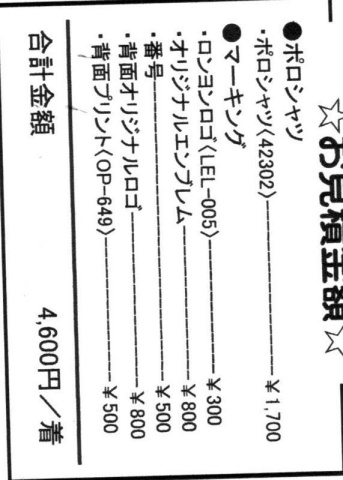 ☆お見積金額☆
●ポロシャツ
・ポロシャツ〈42302〉――――――¥1,700
●マーキング
・ロンヨンロゴ〈LEL-005〉――――¥300
・オリジナルエンブレム――――――¥800
・番号――――――――――――――¥500
・背面オリジナルロゴ―――――――¥800
・背面プリント〈OP-649〉――――¥500
合計金額 4,600円／着